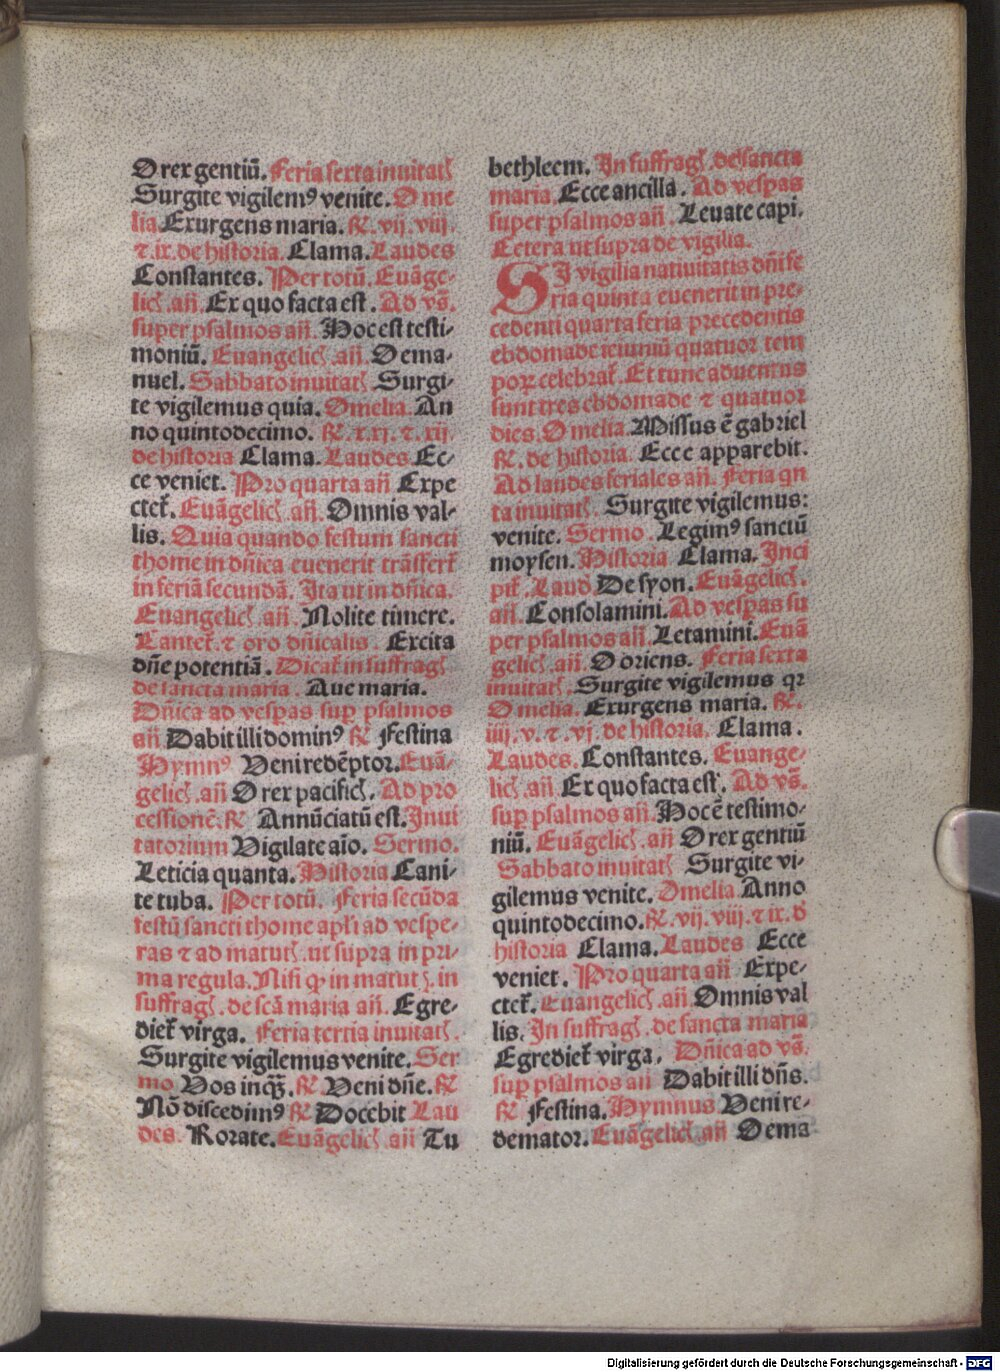 O rex gentiū. Feria sexta inuitatꝭ
Surgite vigilemꝰ venite. O me
lia. Exurgens maria. ℟. vij. viij.
⁊ ix. de historia. Clama. Laudes
Constantes. Per totū. Euāge-
licꝭ. añ. Ex quo facta est. Ad vs̄.
super psalmos añ. Hoc est testi-
moniū. Euangelicꝭ. añ. O ema-
nuel. Sabbato inuitatꝭ Surgi-
te vigilemus quia. Omelia. An
no quintodecimo. ℟. x. xj. ⁊. xij.
de historia Clama. Laudes. Ec-
ce veniet. Pro quarta añ Expe
ctet᷑. Euāgelicꝭ. añ. Omnis val-
lis. Quia quando festum sancti
thome in dñica euenerit trāsfert᷑
in feriā secundā. Ita ut in dñica.
Euangelicꝭ. añ. Nolite timere.
Cantet᷑. ⁊ oro dñicalis. Excita
dñe potentiā. Dicat᷑ in suffragꝭ
de sancta maria. Aue maria.
Dñica ad vespas sup psalmos
añ Dabit illi dominꝰ ℟ Festina
Hymnꝰ Veni redēptor. Euā-
gelicꝭ. añ O rex pacificꝭ. Ad pro
cessionē. ℟ Annūciatū est. Inui
tatorium Vigilate aīo. Sermo.
Leticia quanta. Historia Cani-
te tuba. Per totū. Feria secūda
festū sancti thome apl̄i ad vespe-
ras ⁊ ad matutꝭ. ut supra in pri-
ma regula. Nisi ꝙ in matutꝭ. in
suffragꝭ. de scā maria añ. Egre-
diet᷑ virga. Feria tertia inuitatꝭ.
Surgite vigilemus venite. Ser
mo Vos inqꝫ. ℟ Veni dñe. ℟
Nō discedimꝰ ℟ Docebit Lau
des. Rorate. Euāgelicꝭ. añ Tu
bethleem. In suffragꝭ. de sancta
maria. Ecce ancilla. Ad vespas
super psalmos añ. Leuate capi.
Cetera ut supra de vigilia.
SI vigilia natiuitatis dñi fe
ria quinta euenerit in pre-
cedenti quarta feria precedentis
ebdomade ieiuniū quatuor tem
poꝝ celebrat᷑. Et tunc aduentus
sunt tres ebdomade ⁊ quatuor
dies. Omelia. Missus ē gabriel
℟. de historia. Ecce apparebit.
Ad laudes feriales añ. Feria qn
ta inuitatꝭ. Surgite vigilemus:
venite. Sermo. Legimꝰ sanctū
moysen. Historia Clama. Inci
pit᷑. Laud De syon. Euāgelicꝭ.
añ. Consolamini. Ad vespas su
per psalmos añ. Letamini. Euā
gelicꝭ. añ. O oriens. Feria sexta
inuitatꝭ. Surgite vigilemus qꝛ
Omelia. Exurgens maria. ℟.
iiij. v. ⁊. vj. de historia. Clama.
Laudes. Constantes. Euange-
licꝭ. añ Ex quo facta est. Ad vs̄.
sup psalmos añ. Hoc ē testimo-
niū. Euāgelicꝭ. añ O rex gentiū
Sabbato inuitatꝭ Surgite vi-
gilemus venite. Omelia. Anno
quintodecimo. ℟. vij. viij. ⁊ ix. d̄
historia Clama. Laudes Ecce
veniet. Pro quarta añ Expe-
ctet᷑. Euangelicꝭ. añ. Omnis val
lis. In suffragꝭ. de sancta maria
Egrediet᷑ virga. Dñica ad vs̄.
sup psalmos añ Dabit illi dñs.
℟ Festina. Hymnus Veni re-
demator. Euāgelicꝭ. añ O ema
Digitalisierung gefördert durch die Deutsche Forschungsgemeinschaft - DFG